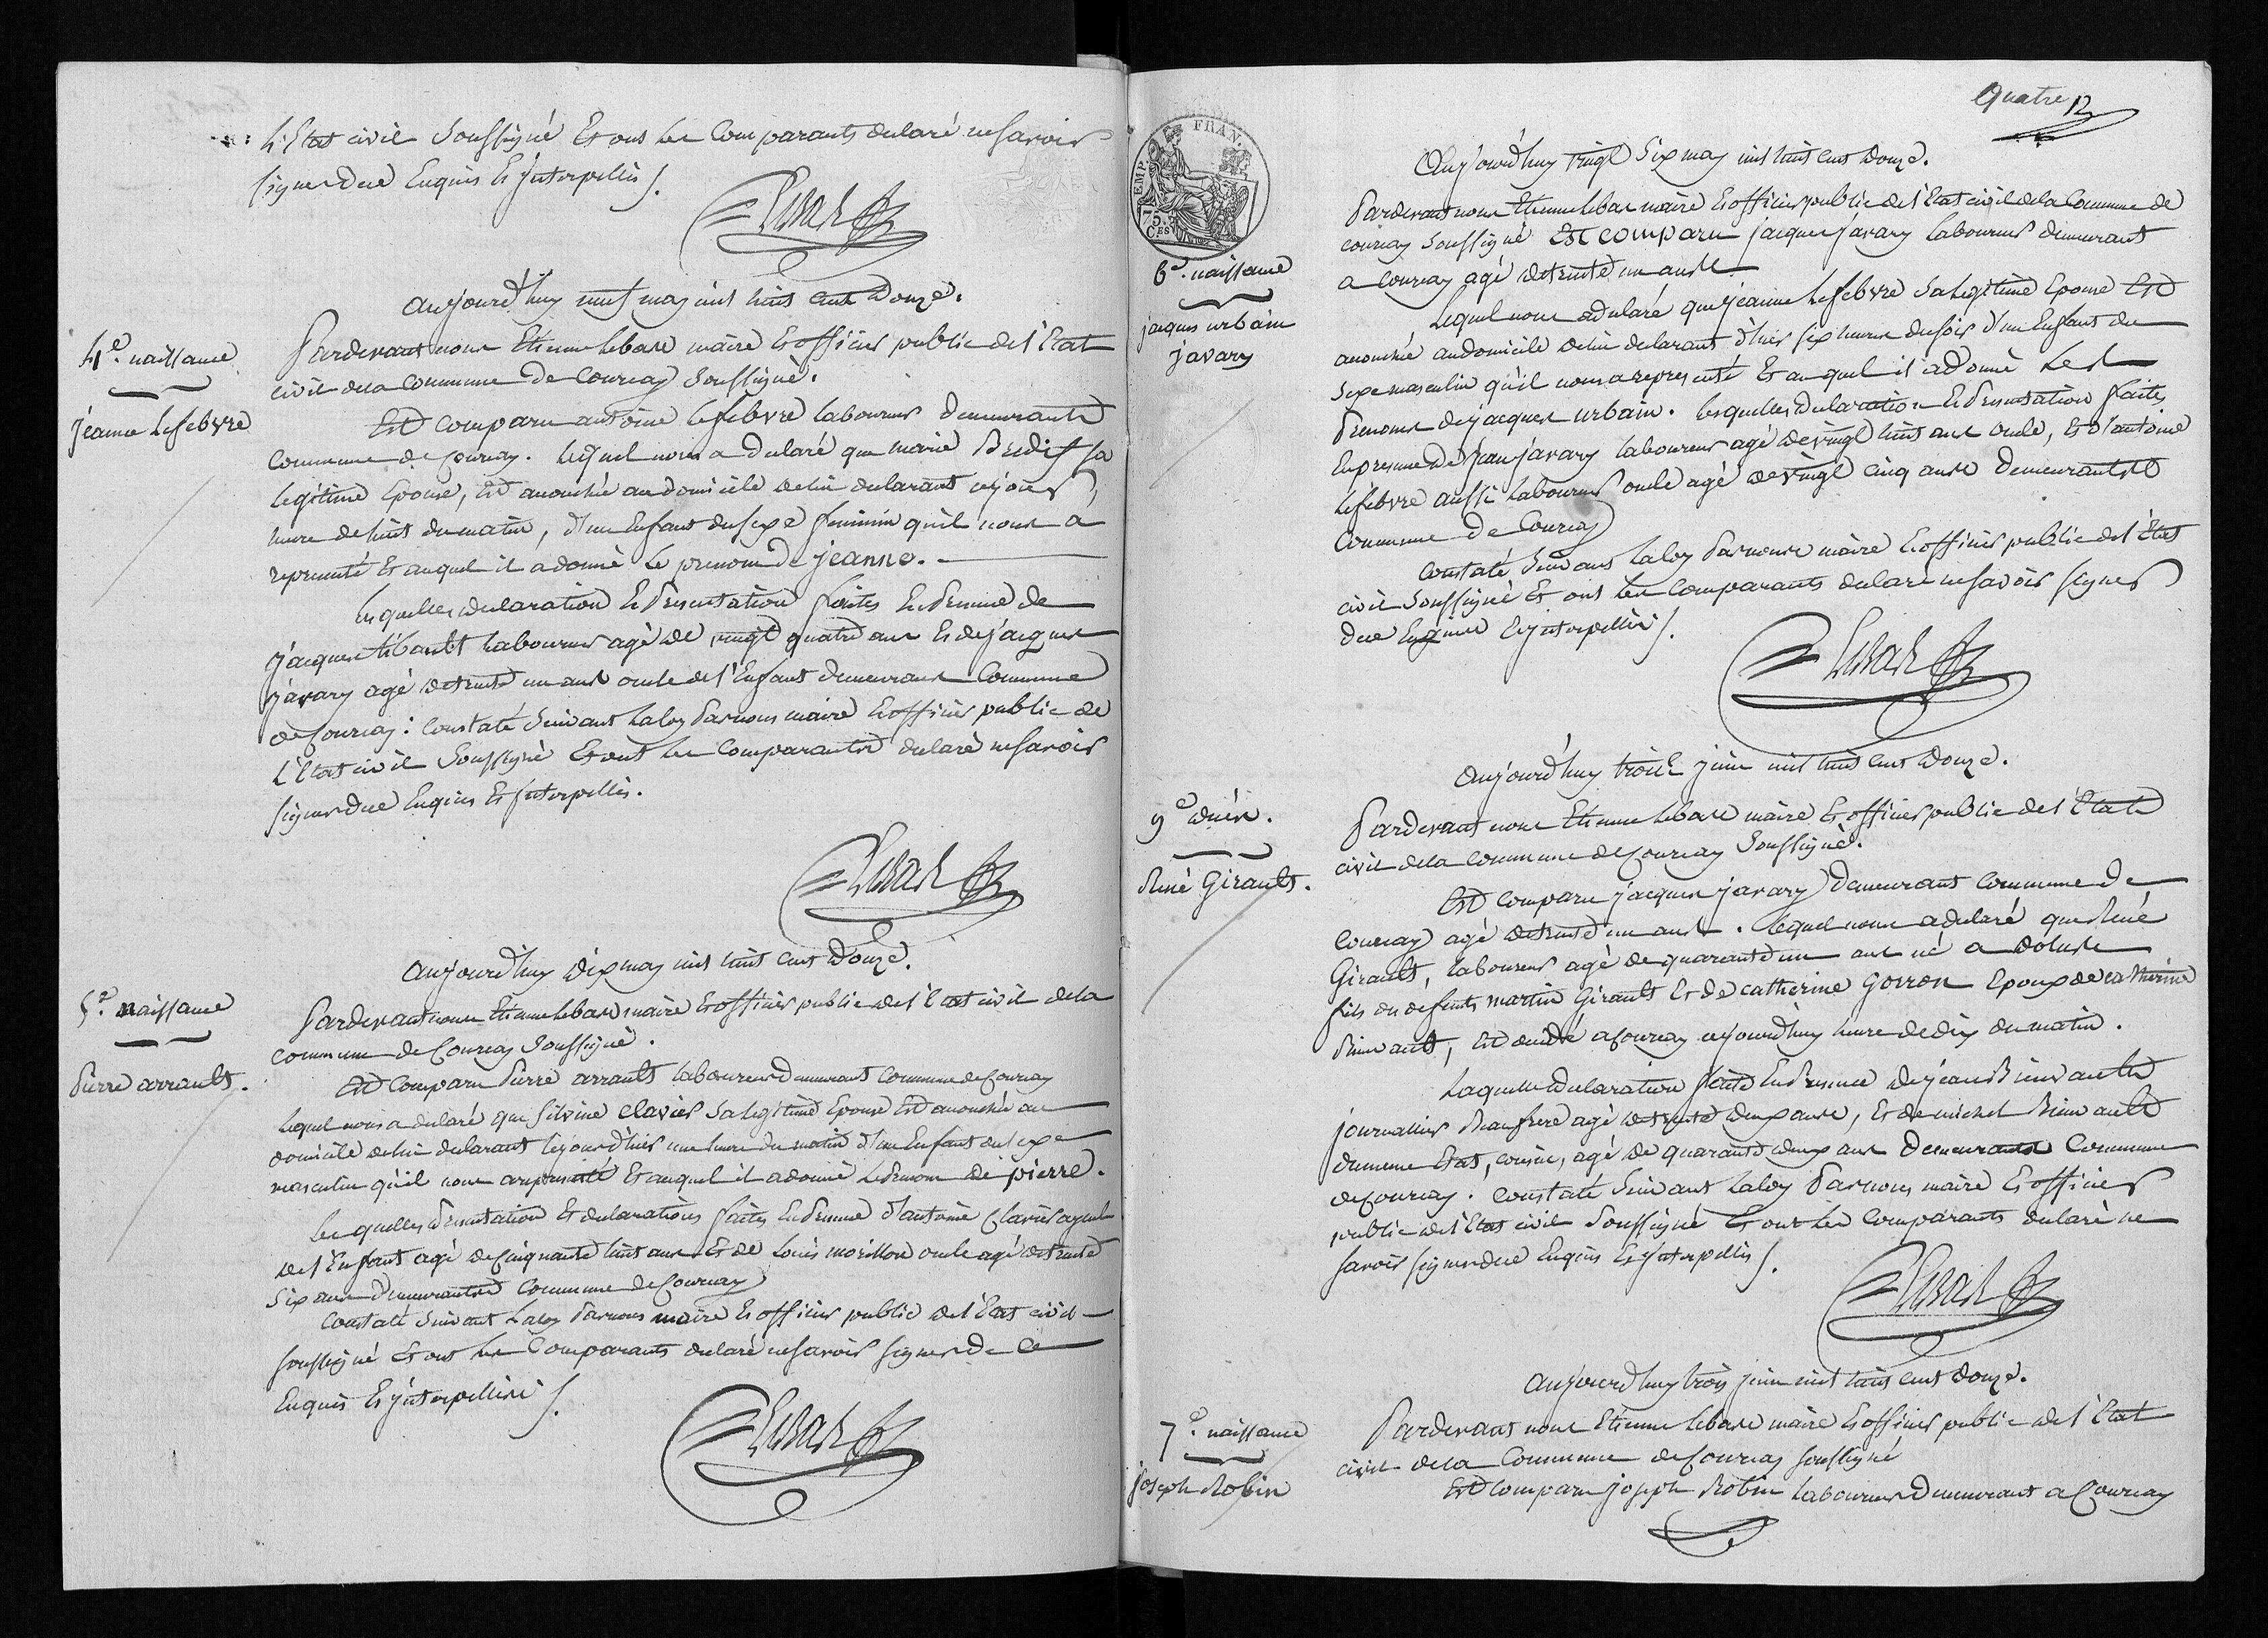 L'Etat civil soussigné Et ont les Comparants declaré ne savoir
signer de ce Enquis Et jnterpellés /.
aujourd'huy neuf may mil huit cent Douze.
4e. naissance
jeanne Lefebvre
Pardevant nous Etienne Lebare maire Et officier public de l'Etat
civil de la commune de Courcay soussigné.
Est comparu antoine Lefebvre laboureur demeurant
commune de Courcay. Lequel nous a declaré que marie Bredif sa
legitime Epouse, Est accouchée au domicile de lui declarant cejour
heure de huit du matin, d'un Enfant du sexe feminin qu'il nous a
representé Et auquel il a donné Le prenom de jeanne.
Lesquelles declaration Et Presentation faites En Presence de
jacques tibault laboureur agé de vingt quatre ans Et de jacques
javary agé de trente un ans oncle de l'Enfant demeurans Commune
de Courcay: constaté Suivant La loy Par nous maire Et officier public de
L'Etat civil Soussigné Et ont les Comparants declaré ne savoir
signer de ce Enquis Et jnterpellés.
aujourd'huy dix may mil huit cent Douze.
5e. naissance
Pierre arrault.
Pardevant nous Etienne Lebare maire Et officier public de l'Etat civil de la
commune de Courcay soussigné.
Est comparu Pierre arrault laboureur demeurant commune de Courcay
Lequel nous a declaré que Silvine Clavier sa legitime Epouse Est accouchée au
domicile de lui declarant le jour d'hier une heure du matin d'un Enfant du sexe
masculin qu'il nous a representé Et auquel il a donné Le Prenom de pierre.
Lesquelles Presentation Et declarations faites En Presence d'antoine Clavier ayeul
de l'Enfant agé de Cinquante huit ans Et de Louis morillon oncle agé de trente
six ans demeurants Commune de Courcay
Constaté Suivant La loy Par nous maire Et officier public de l'Etat civil
soussigné Et ont les Comparants declaré ne savoir signer de ce
Enquis Et jnterpellés /.
Quatre
FRAN.
EMP.
75.
CES
aujourd'huy vingt six may mil huit cent Douze.
6e. naissance
jacques urbain
javary
Pardevant nous Etienne Lebare maire Et officier public de l'Etat civil de la Commune de
courcay soussigné Est comparu jacques javary laboureur demeurant
a Courcay agé de trente un ans
Lequel nous a declaré que jeanne Lefebvre sa Legitime Epouse Est
accouchée au domicile de lui declarant d'hier six heures du soir d'un Enfant du
sexe masculin qu'il nous a representé Et auquel il a donné Les
Prenoms de jacques urbain. Lesquelles declaration Et Presentation faites
En presence de jean javary laboureur agé de vingt huit ans oncle, Et d'antoine
Lefebvre aussi laboureur oncle agé de vingt cinq ans demeurants
Commune de Courcay
Constaté Suivant La loy Par nous maire Et officier public de l'Etat
civil soussigné Et ont les Comparants declaré ne savoir signer
de ce Enquis Et jnterpellés /.
aujourd'huy trois juin mil huit cent Douze.
9e deces.
René Girault.
Pardevant nous Etienne Lebare maire Et officier public de l'Etat
civil de la commune de Courcay soussigné.
Est comparu jacques javary demeurant commune de
Courcay agé de trente un ans. Lequel nous a declaré que René
Girault, laboureur agé de quarante un ans né a dolus
fils de defunts martin Girault Et de Catherine Gorron Epoux de Catherine
Rimbault, Est decédé a Courcay aujourd'huy heure de dix du matin.
Laquelle declaration faite En Presence de jean Rimbault
journalier Beaufrere agé de trente deux ans, Et de michel Rimbault
du meme Etat, cousin, agé de quarante deux ans demeurants Commune
de Courcay. constaté Suivant La loy Par nous maire Et officier
public de l'Etat civil Soussigné Et ont Les Comparants declaré ne
savoir signer de ce Enquis Et jnterpellés /.
aujourd'huy trois juin mil huit cent Douze.
7e. naissance
joseph Robin
Pardevant nous Etienne Lebare maire Et officier public de l'Etat
civil de la Commune de Courcay soussigné
Est comparu joseph Robin Laboureur demeurant a Courcay